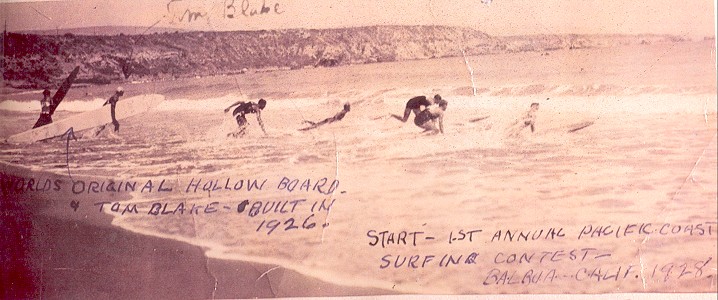 Tom Blake
WORLDS ORIGINAL HOLLOW BOARD.
& TOM BLAKE - BUILT IN
1926.
START - 1ST ANNUAL PACIFIC COAST
SURFING CONTEST -
BALBOA - CALIF. 1928.